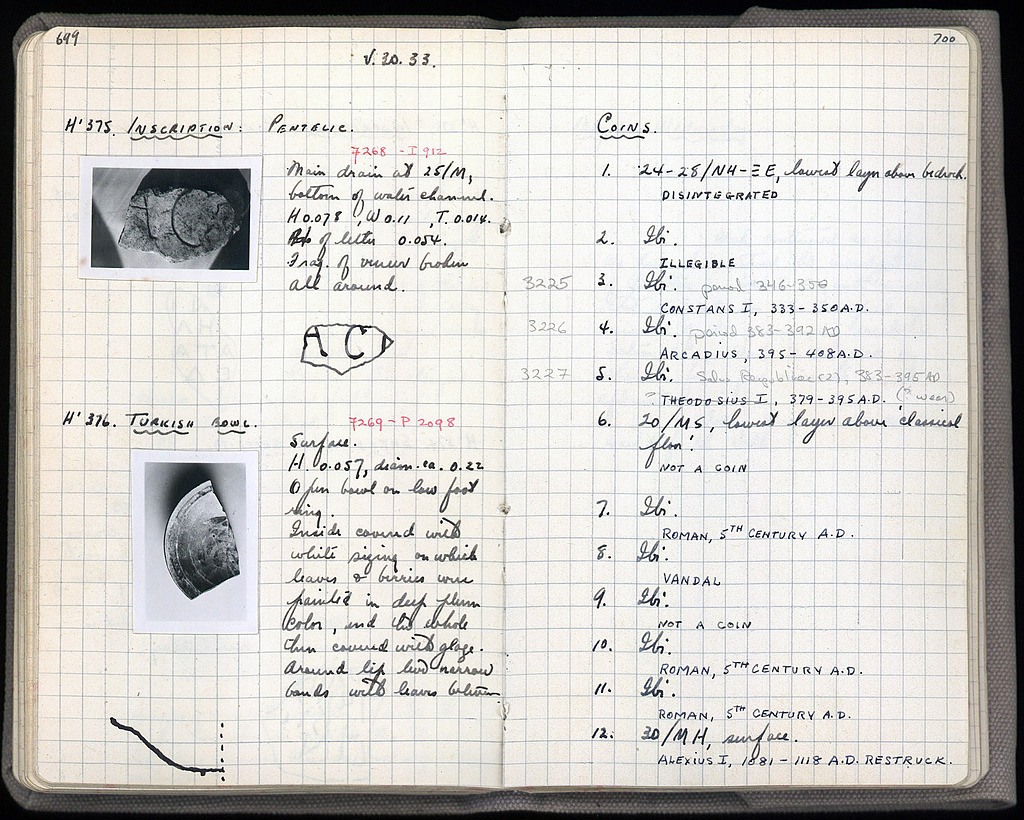 699
V. 30. 33.
H' 375. INSCRIPTION: PENTELIC.
7268 - I 912
Main drain at 25/M,
bottom of water channel.
H 0.078, W 0.11, T. 0.014.
of letter 0.054.
Frag. of veneer broken
all around.
A C
H' 376. TURKISH BOWL.
7269 - P 2098
Surface.
H. 0.057, diam. ca. 0.22
Open bowl on low foot
ring.
Inside covered with
white sizing on which
leaves & berries were
painted in deep plum
color, and the whole
then covered with glaze.
Around lip two narrow
bands with leaves between
700
COINS.
1. 24-28/NH-ΞE, lowest layer above bedrock.
DISINTEGRATED
2. Ibi.
ILLEGIBLE
3225 3. Ibi. period 346-350
CONSTANS I, 333-350 A.D.
3226 4. Ibi. period 383-392 AD
ARCADIUS, 395-408 A.D.
3227 5. Ibi. Salus Reipublicae (2), 383-395 AD
? THEODOSIUS I, 379-395 A.D. (? wear)
6. 20/MS, lowest layer above 'classical
floor'.
NOT A COIN
7. Ibi.
ROMAN, 5TH CENTURY A.D.
8. Ibi.
VANDAL
9. Ibi.
NOT A COIN
10. Ibi.
ROMAN, 5TH CENTURY A.D.
11. Ibi.
ROMAN, 5TH CENTURY A.D.
12. 30/MH, surface.
ALEXIUS I, 1081-1118 A.D. RESTRUCK.